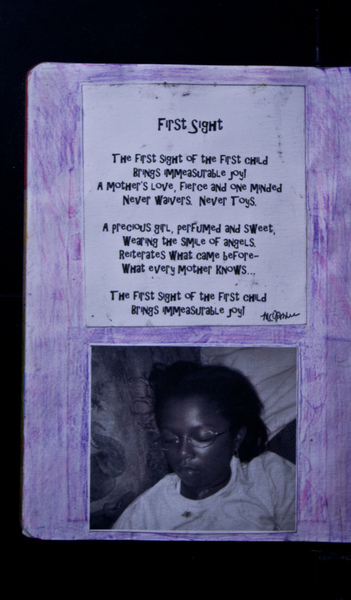 First Sight
The first sight of the first child
Brings immeasurable joy!
A mother's love, fierce and one minded
Never waivers. Never toys.
A precious girl, perfumed and sweet,
Wearing the smile of angels.
Reiterates what came before-
What every mother knows...
The first sight of the first child
Brings immeasurable joy!